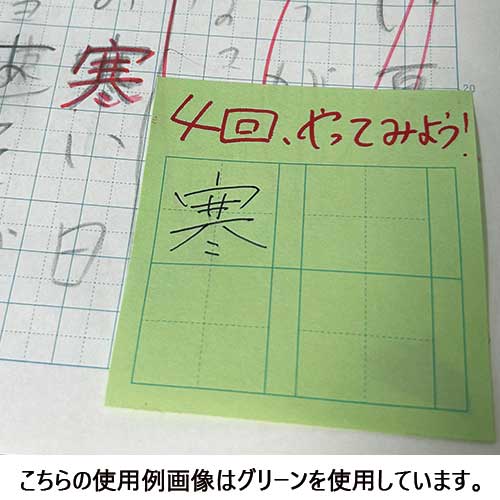 寒
い
日
20
4回、やってみよう!
寒
こちらの使用例画像はグリーンを使用しています。